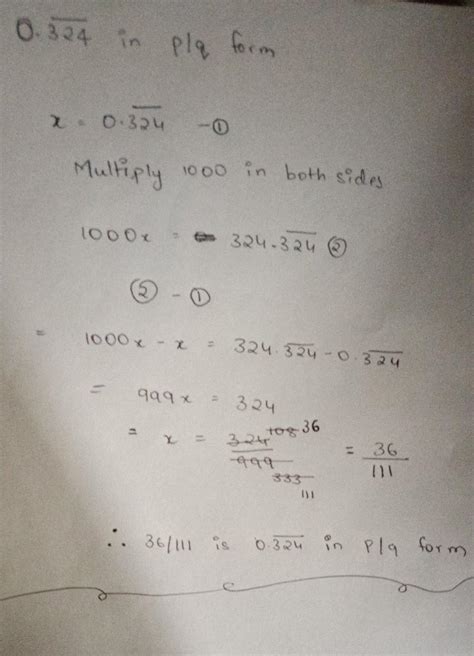 0.3̅2̅4̅ in p/q form
x = 0.3̅2̅4̅ - ①
Multiply 1000 in both sides
1000x = 324.3̅2̅4̅ ②
② - ①
= 1000x - x = 324.3̅2̅4̅ - 0.3̅2̅4̅
= 999x = 324
= x = 324 108 36 / 999 333 111 = 36/111
∴ 36/111 is 0.3̅2̅4̅ in p/q form